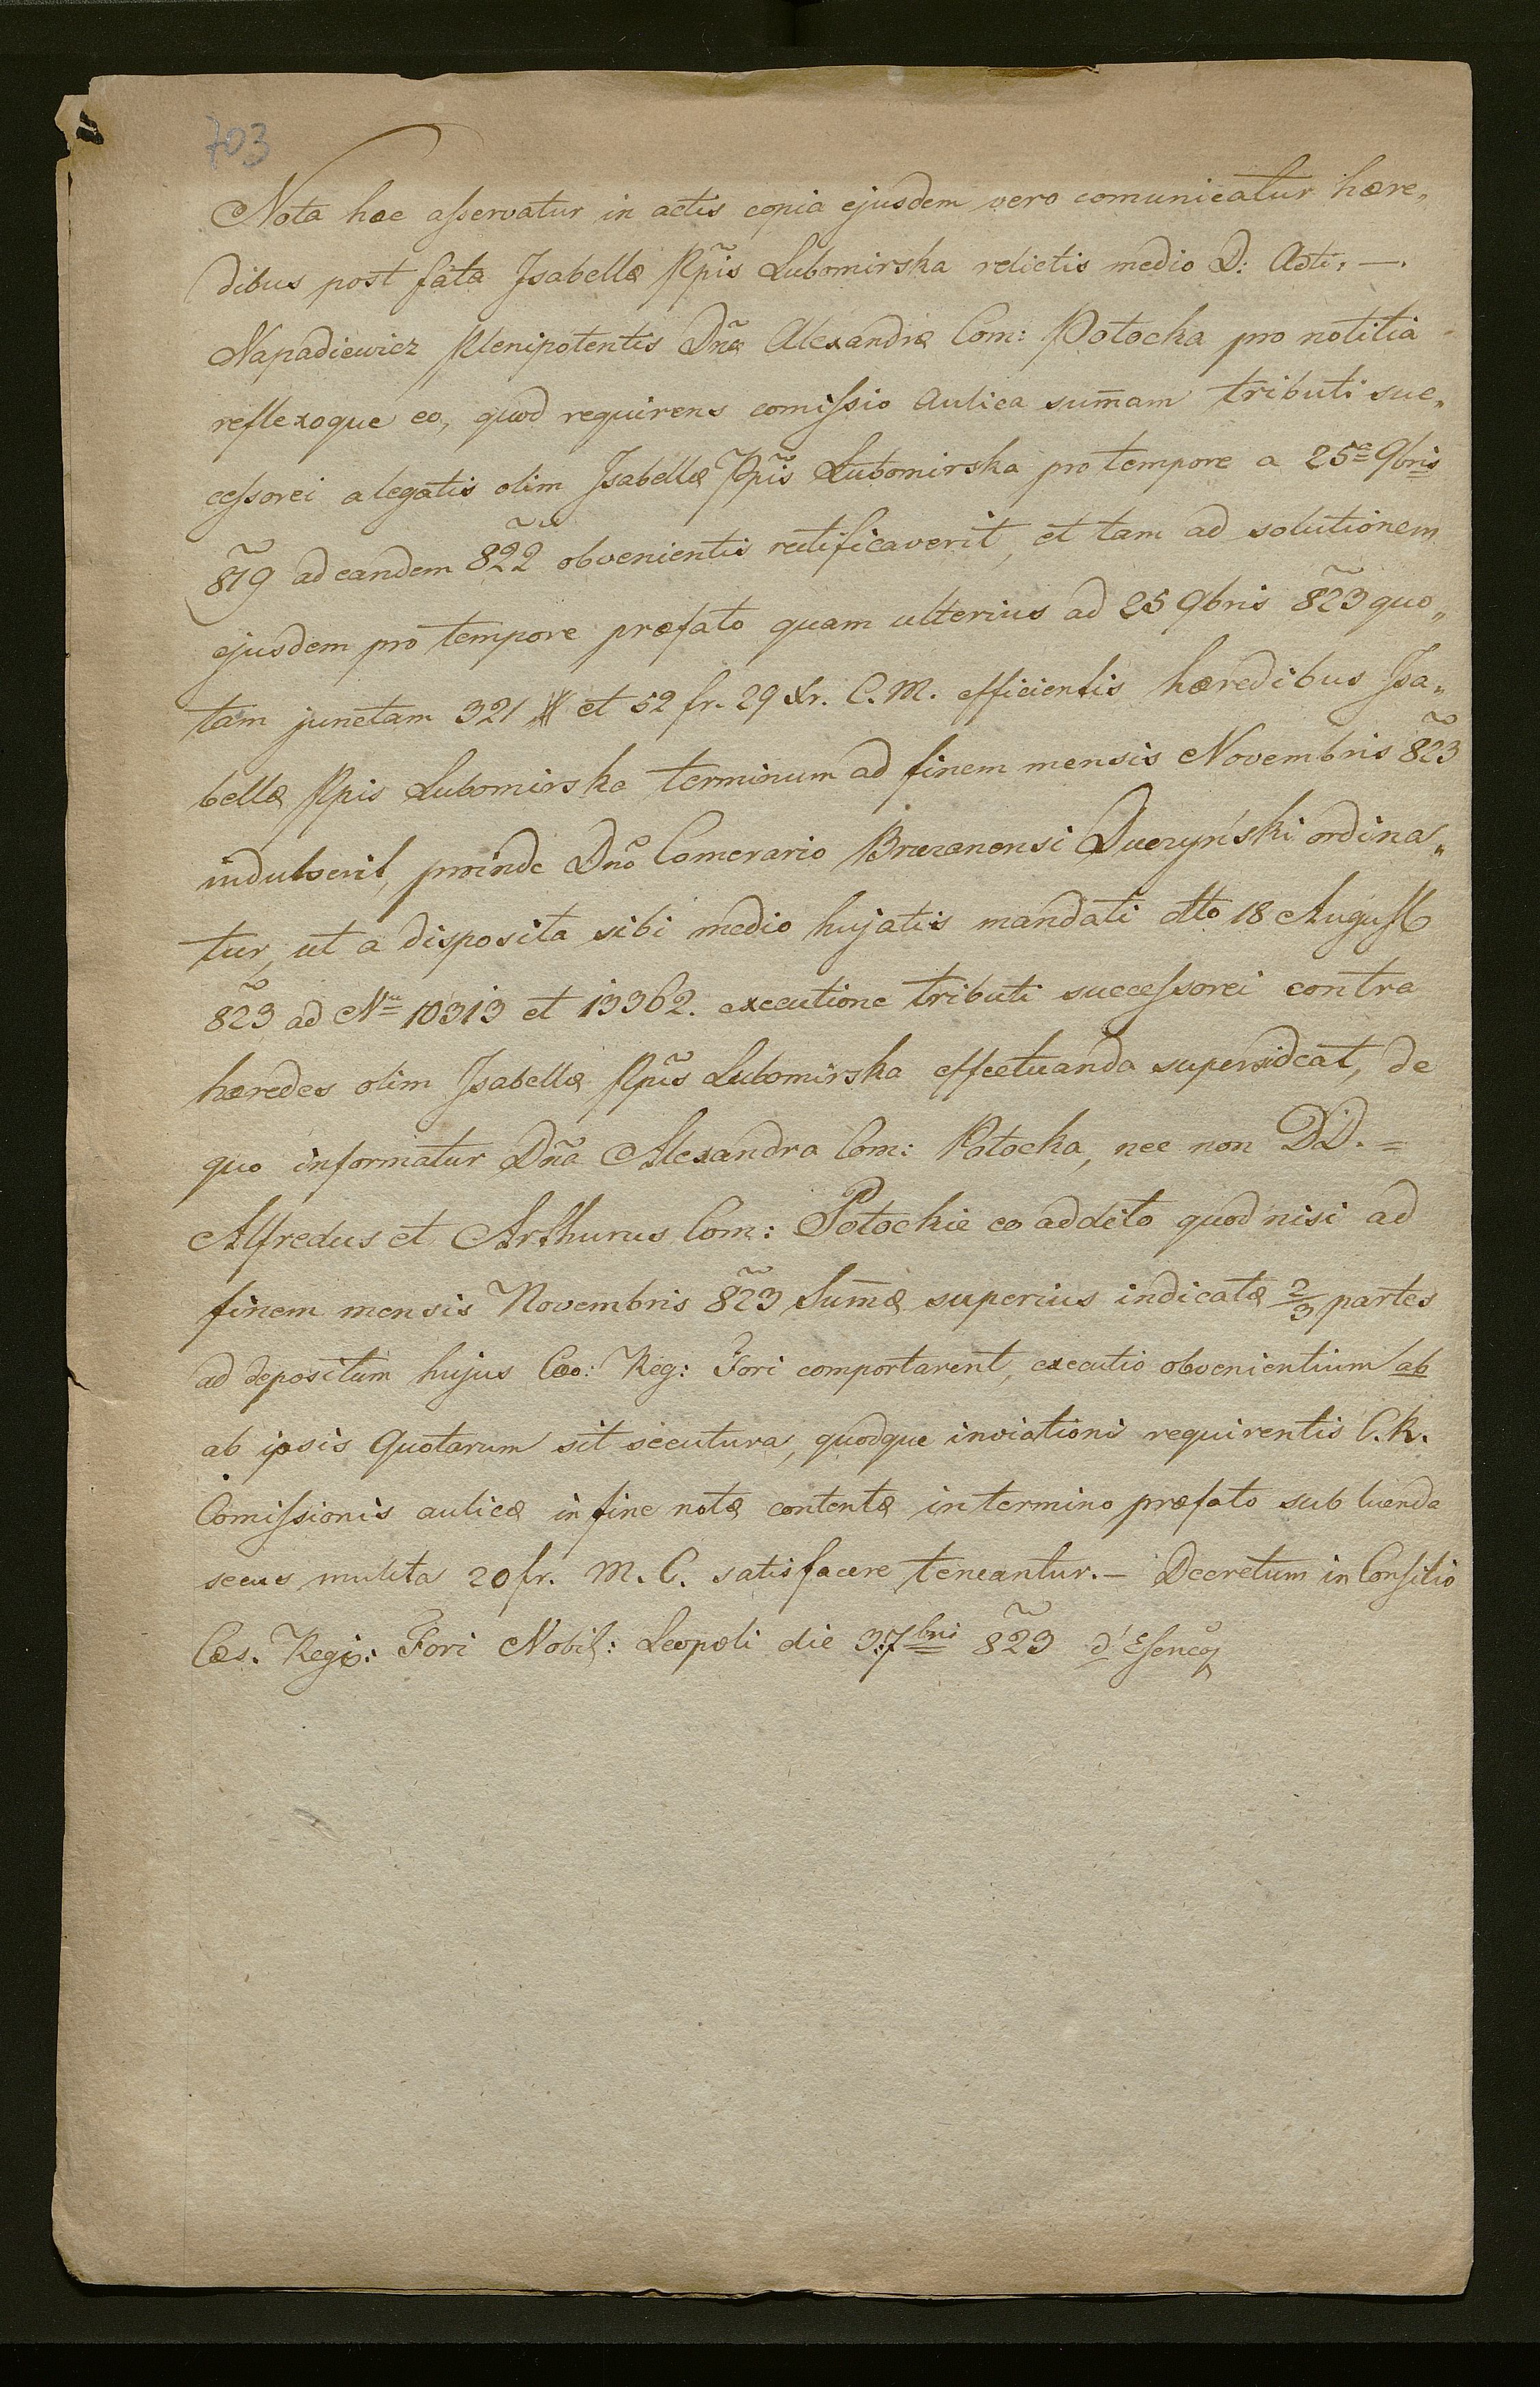 703
Nota hæc asservatur in actis copia ejusdem vero comunicatur hære„
dibus post fata Isabellæ Ppĩs Lubomirska relictis medio D: Adti: —.
Napadiewicz Plenipotentis Dnæ̃ Alexandræ Com: Potocka pro notitia
reflexoque eo, quod requirens comissio Aulica sum̄am tributi suc„
cessorei a legatis olim Isabellæ Ppĩs Lubomirska pro tempore a 25ᵃ 9bris
8̃19 ad eandem 8̃22 obvenientis rectificaverit, et tam ad solutionem
ejusdem pro tempore præfato quam ulterius ad 25 9bris 8̃23 quo„
tam junctam 321 # et 52 fr. 29 Xr. C. M. efficientis hæredibus Isa„
bellæ Ppis Lubomirska terminum ad finem mensis Novembris 8̃23
indulserit, proinde Dnõ Camerario Brzezanensi Duczyński ordina„
tur, ut a disposita sibi medio hujatis mandati dtto 18 August
8̃23 ad Nᵘ 10313 et 13362. executione tributi successorei contra
hæredes olim Isabellæ Ppĩs Lubomirska effectuanda supersideat, de
quo informatur Dnã Alexandra Com: Potocka, nec non DD. =
Alfredus et Arthurus Com: Potockie eo addito quod nisi ad
finem mensis Novembris 8̃23 Sum̄æ superius indicatæ 2/3 partes
ad depositum hujus Cæo: Reg: Fori comportarent, executio obvenientium ab
ab ipsis Quotarum sit secutura, quodque inviationi requirentis C. R.
Comissionis aulicæ in fine notæ contentæ in termino præfato sub luenda
secus mulcta 20 fr. M. C. satisfacere teneantur. — Decretum in Consilio
Cæs. Regio: Fori Nobil: Leopoli die 3 7bri 8̃23